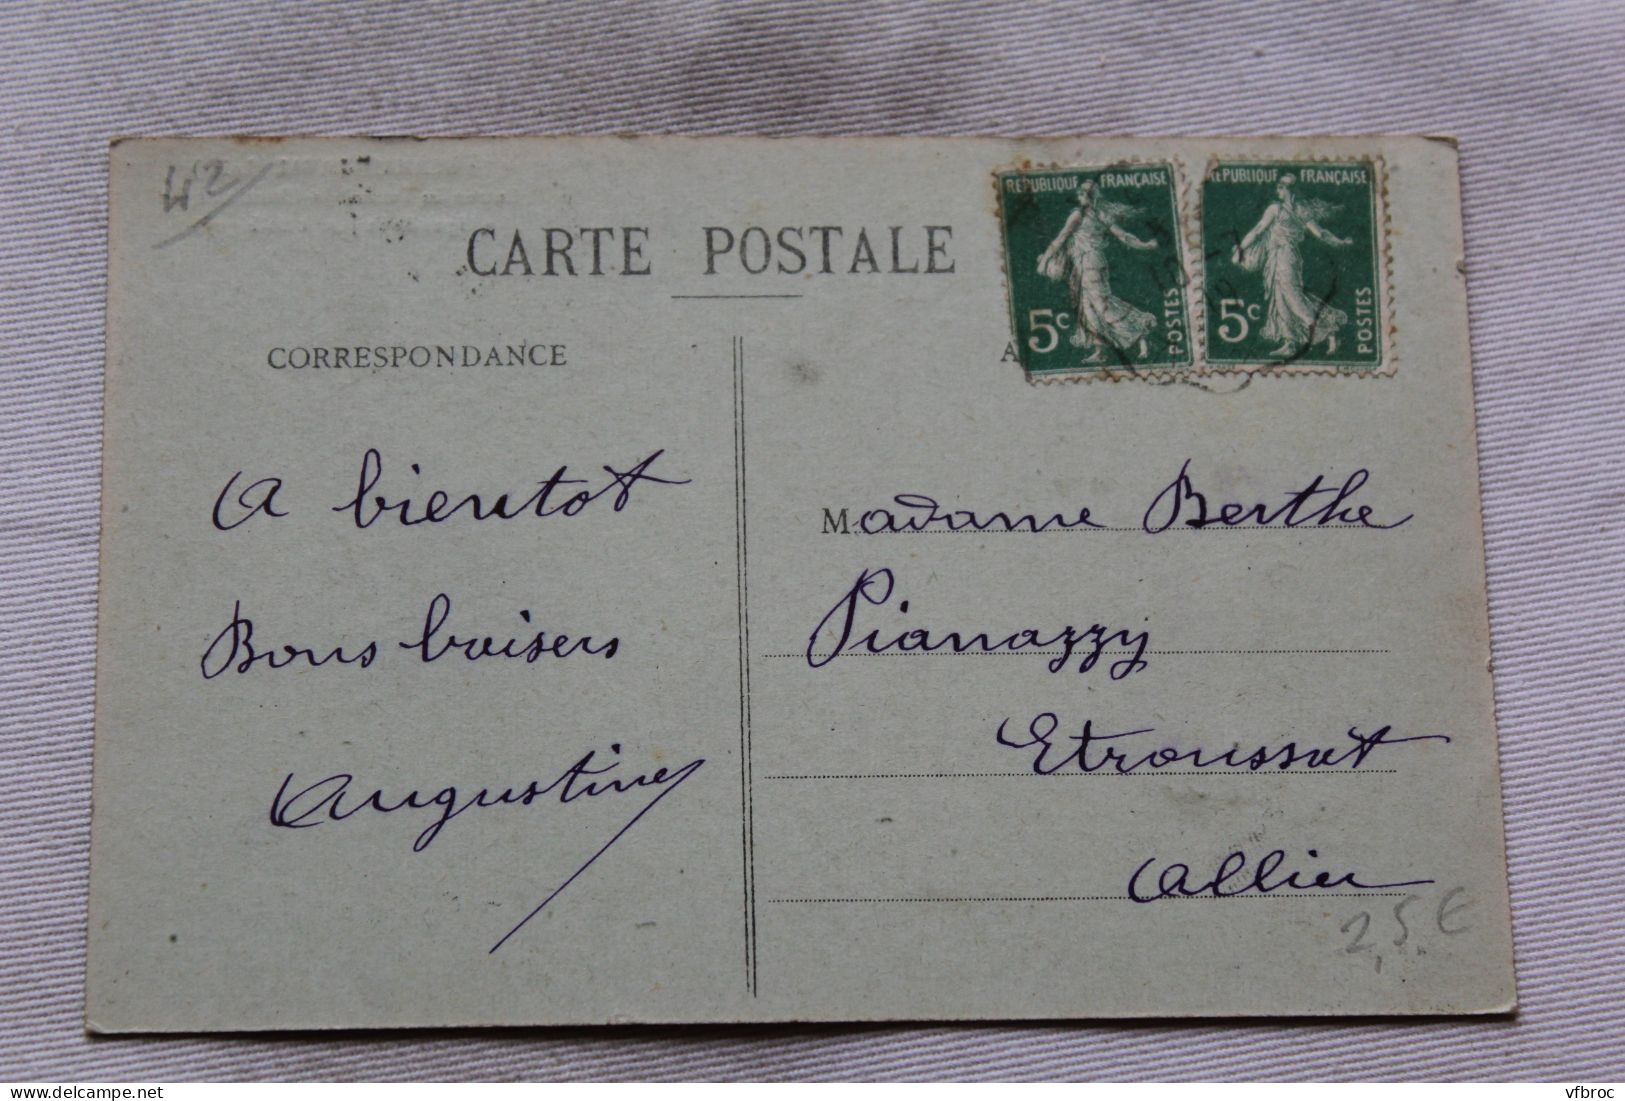 42
CARTE POSTALE
REPUBLIQUE FRANÇAISE
5c
POSTES
REPUBLIQUE FRANÇAISE
5c
POSTES
CORRESPONDANCE
A bientot
Bons baisers
Augustine
Madame Berthe
Pianazzy
Etroussat
Allier
2,5 €
vfbroc